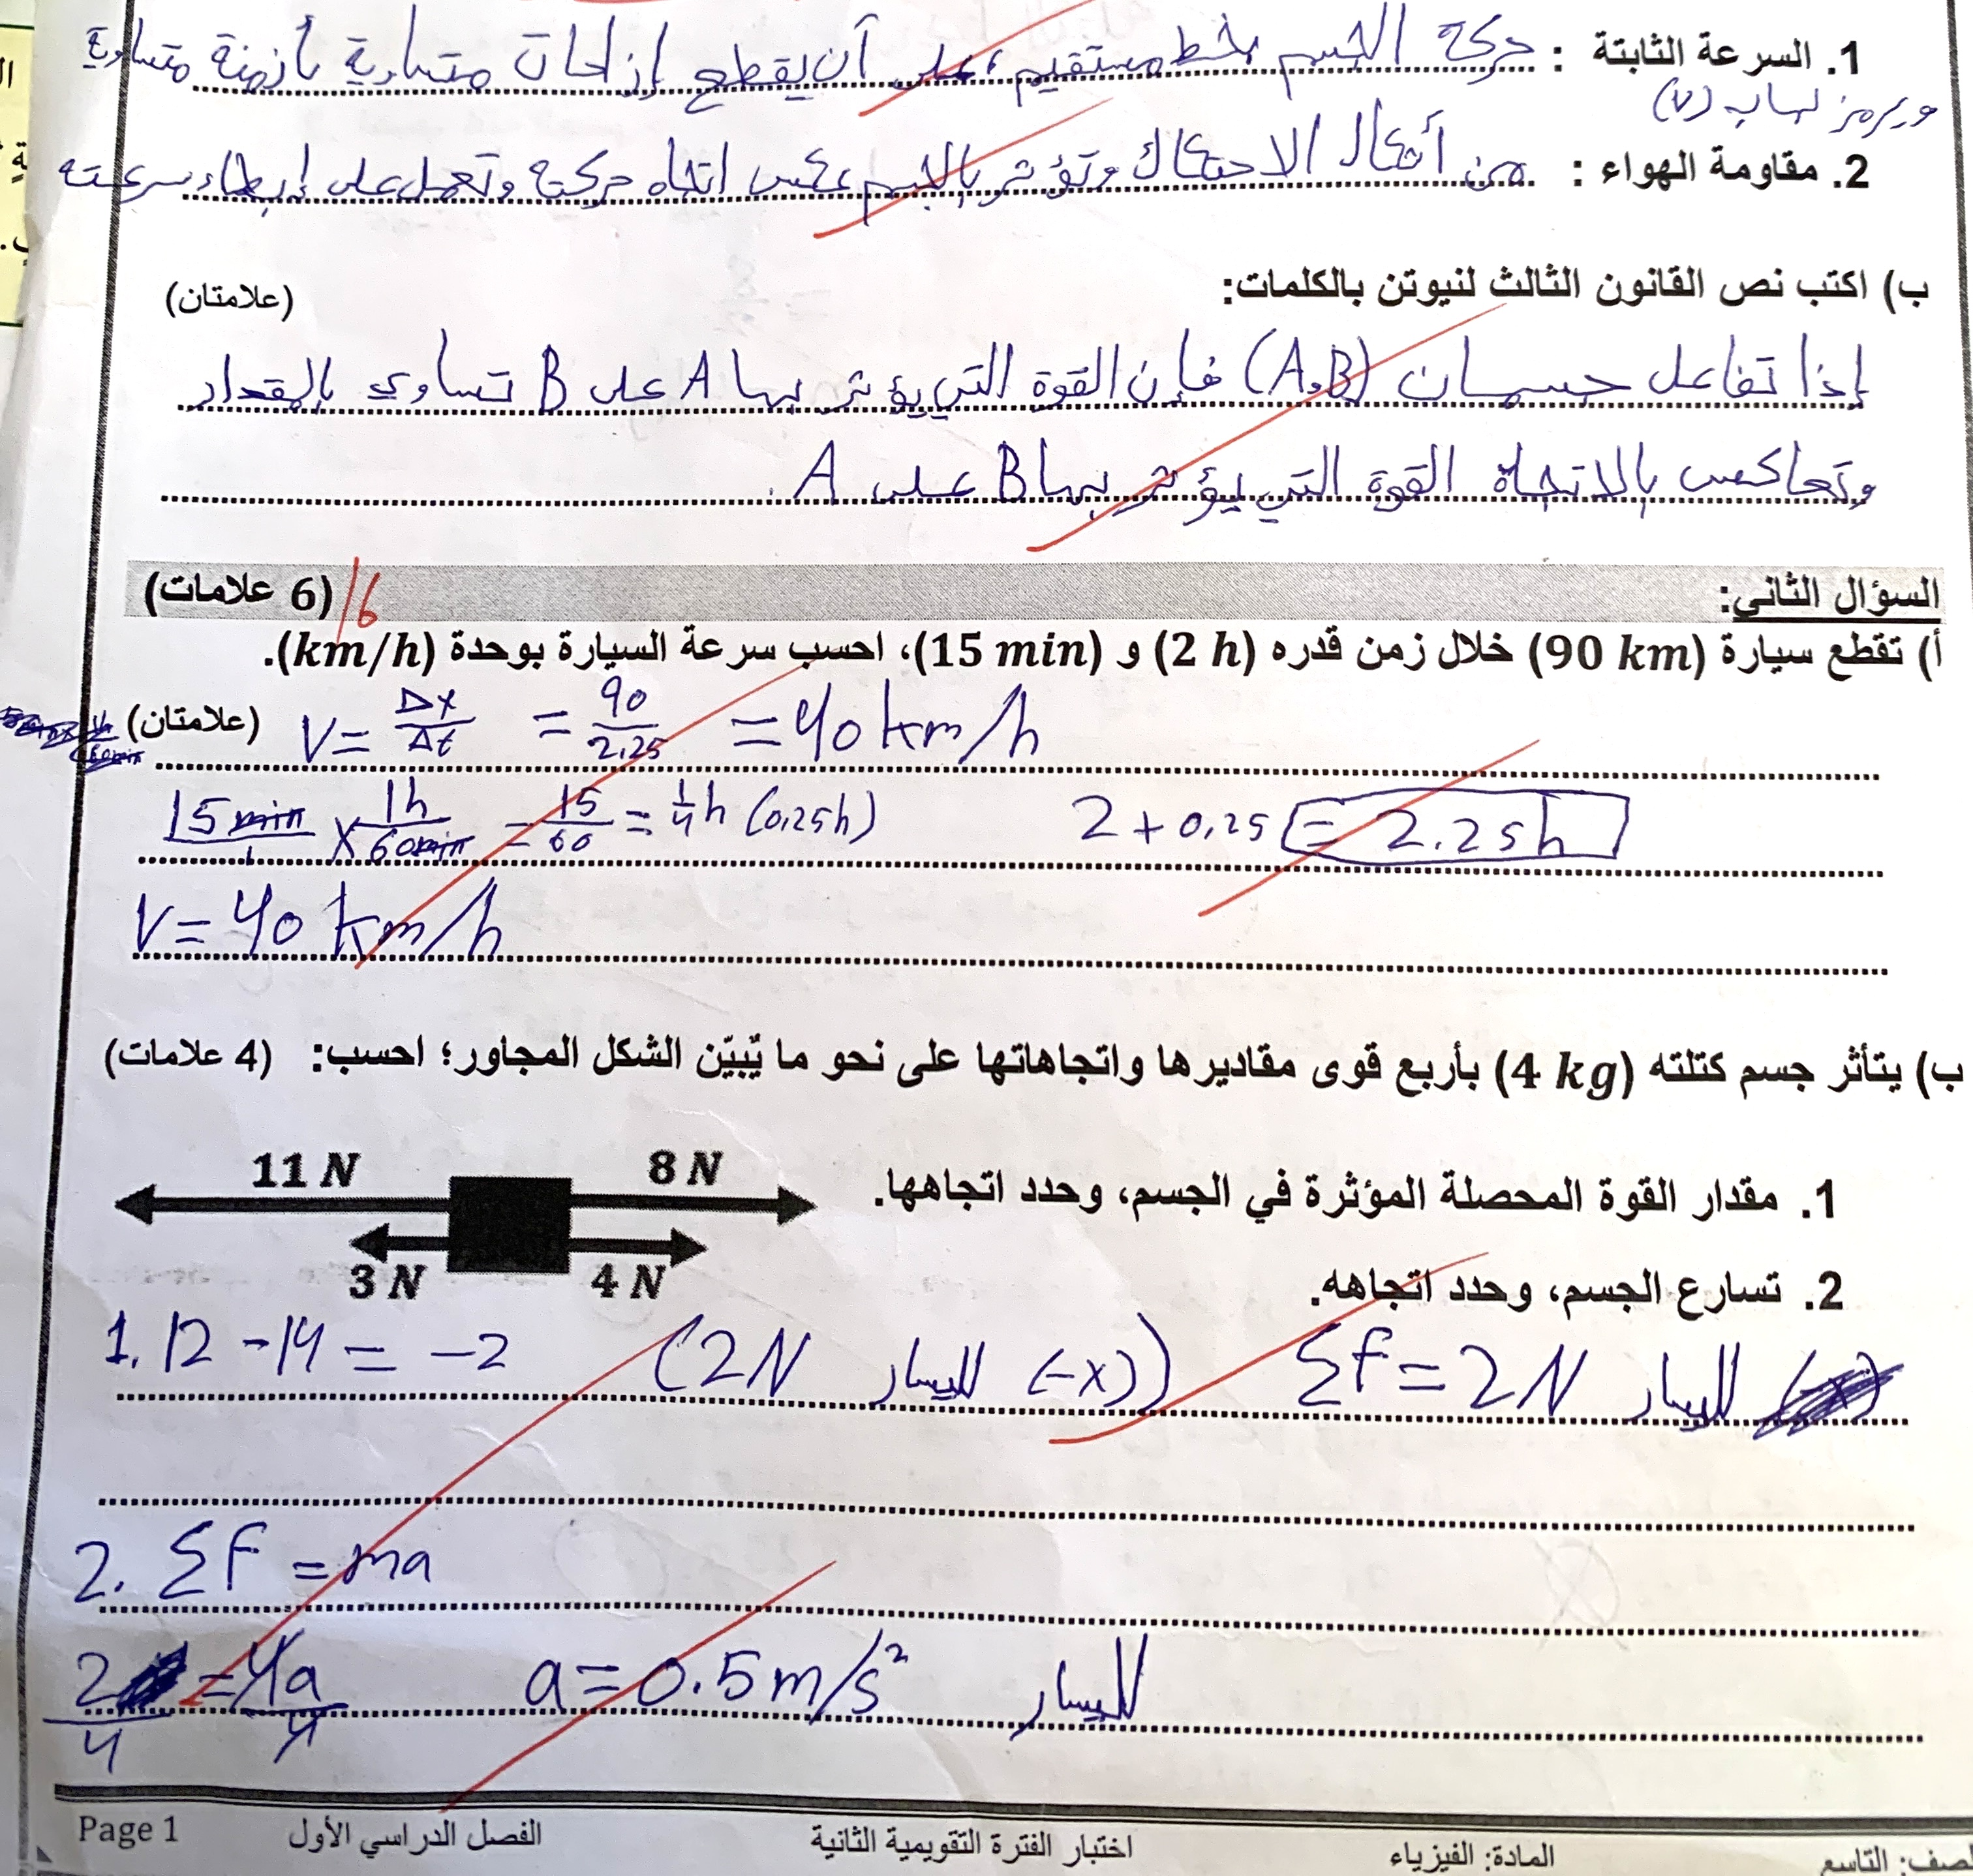 1. السرعة الثابتة : حركة الجسم بخط مستقيم، على أن يقطع إزاحات متساوية بأزمنة متساوية
ويرمز لها ب (v)
2. مقاومة الهواء : من أشكال الاحتكاك وتؤثر بالجسم عكس اتجاه حركته وتعمل على إبطاء سرعته
ب) اكتب نص القانون الثالث لنيوتن بالكلمات: (علامتان)
إذا تفاعل جسمان (A,B) فإن القوة التي يؤثر بها A على B تساوي بالمقدار
وتعاكس بالاتجاه القوة التي يؤثر بها B على A.
السؤال الثاني: (6 علامات) /6
أ) تقطع سيارة (90 km) خلال زمن قدره (2 h) و (15 min)، احسب سرعة السيارة بوحدة (km/h).
(علامتان) V = Δx/Δt = 90/2.25 = 40 km/h
15 min/1 × 1h/60min = 15/60 = 1/4 h (0.25h) 2 + 0.25 = 2.25h
V = 40 km/h
ب) يتأثر جسم كتلته (4 kg) بأربع قوى مقاديرها واتجاهاتها على نحو ما يُبيّن الشكل المجاور؛ احسب: (4 علامات)
11 N 8 N
1. مقدار القوة المحصلة المؤثرة في الجسم، وحدد اتجاهها.
3 N 4 N
2. تسارع الجسم، وحدد اتجاهه.
1. 12 - 14 = -2 (2N لليسار (-x)) ΣF = 2N لليسار
2. ΣF = ma
2/4 = 4a/4 a = 0.5 m/s² لليسار
الصف: التاسع المادة: الفيزياء اختبار الفترة التقويمية الثانية الفصل الدراسي الأول Page 1